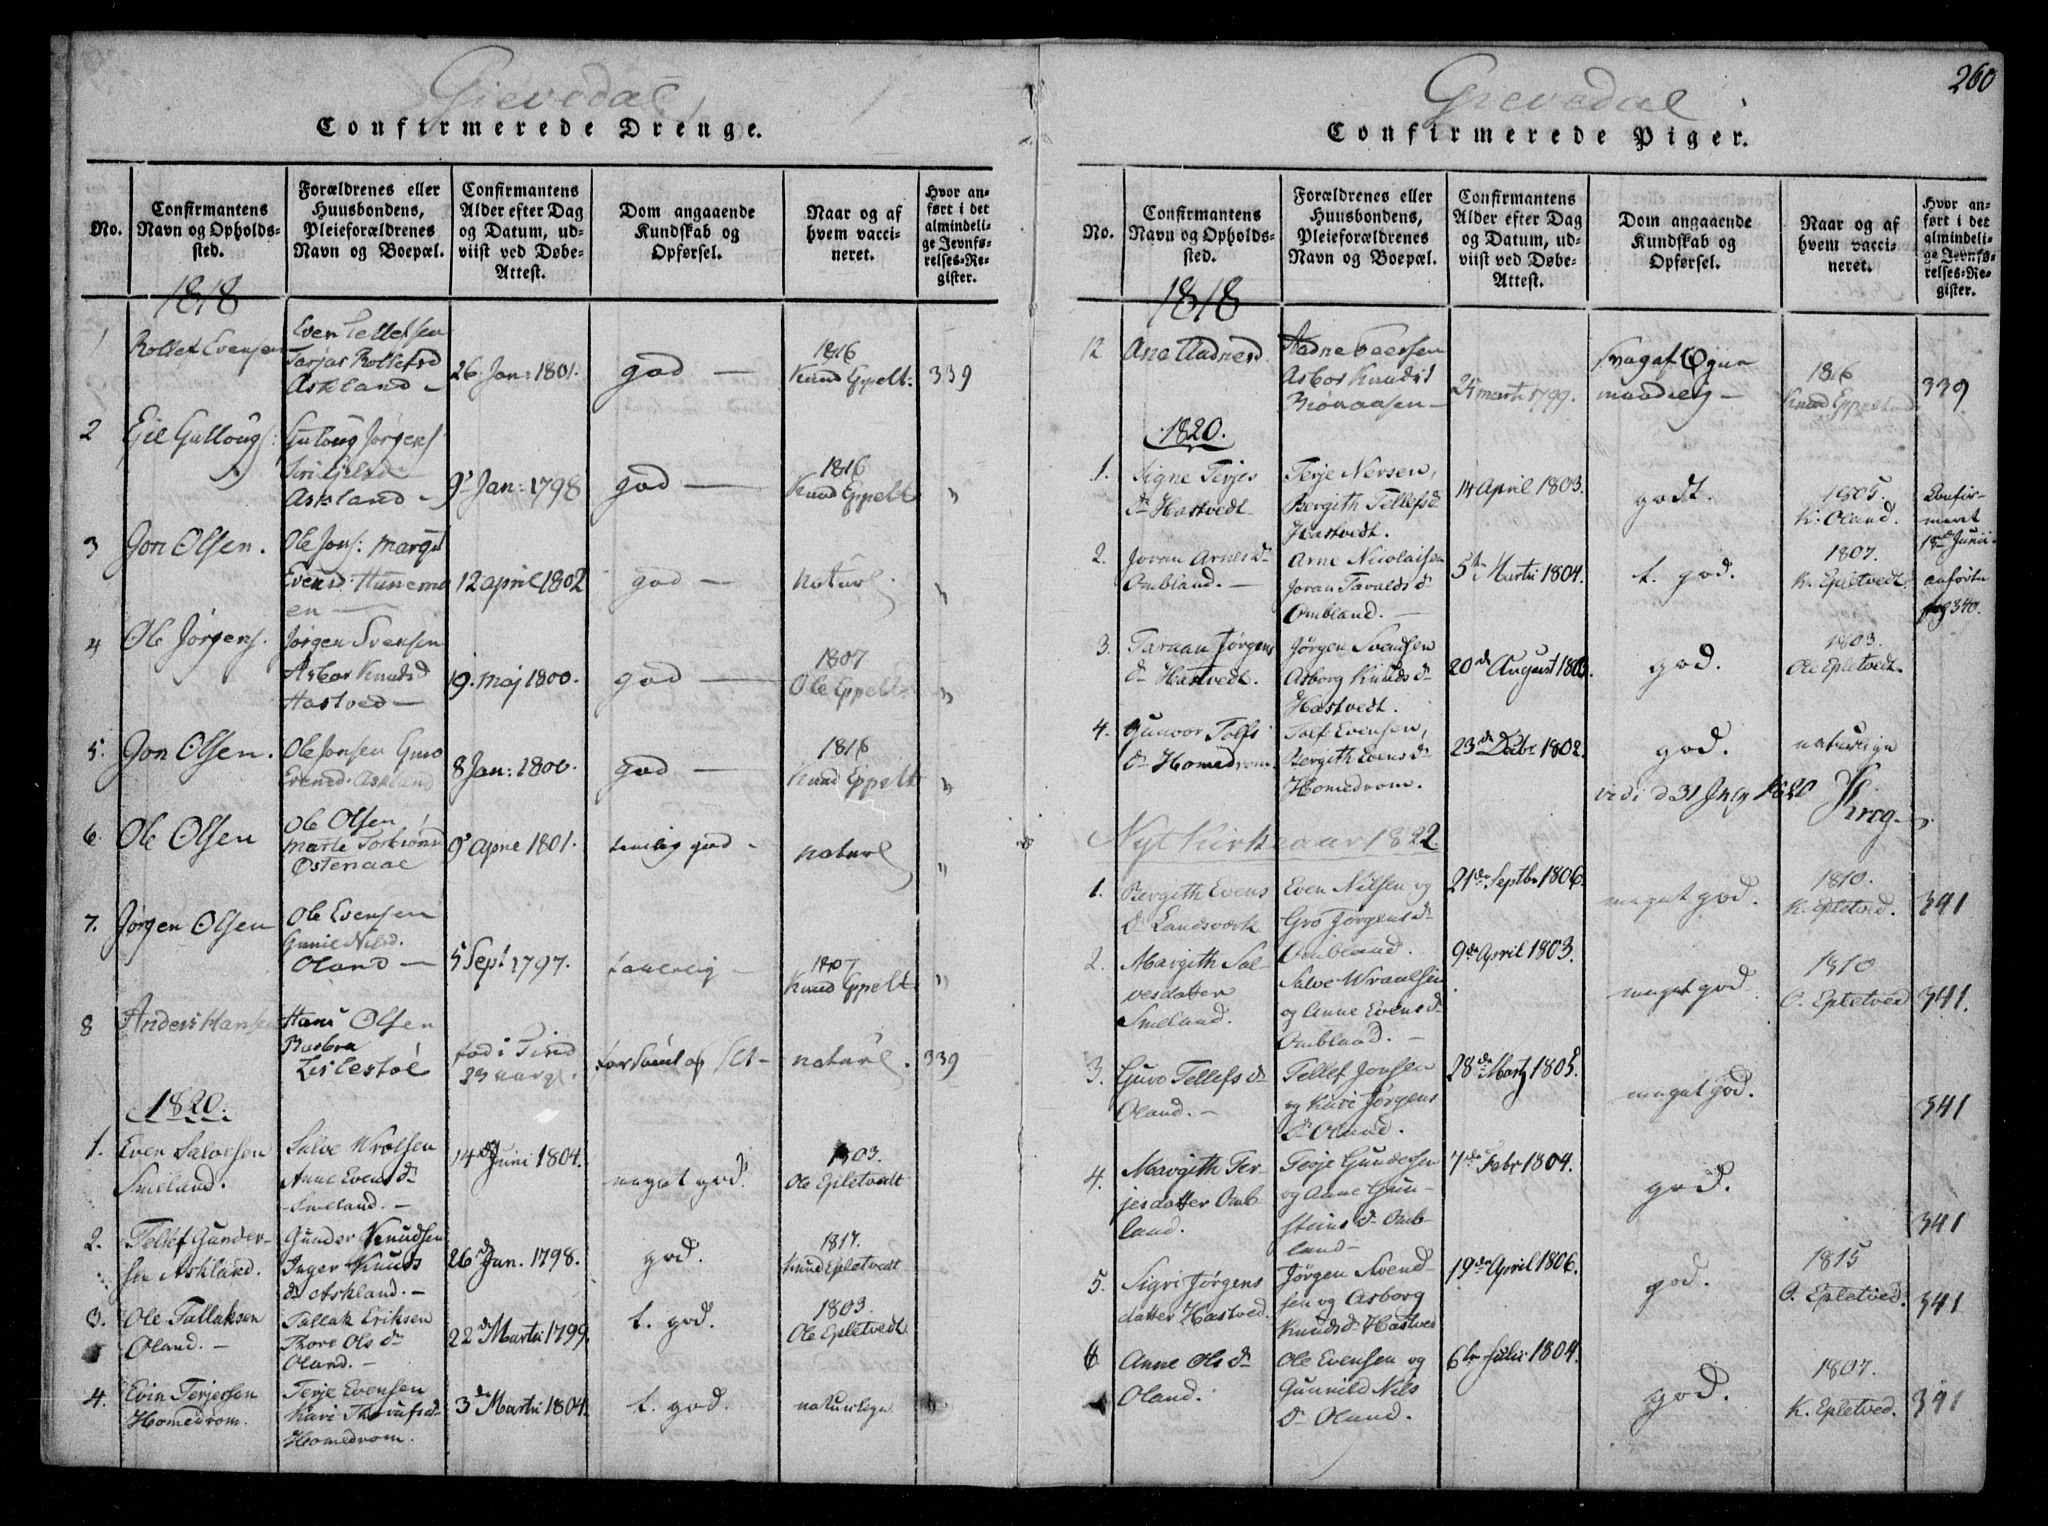 Grevedal
Confirmerede Drenge.
No.
Confirmantens
Navn og Opholds-
sted.
Forældrenes eller
Huusbondens,
Pleieforældrenes
Navn og Boepæl.
Confirmantens
Alder efter Dag
og Datum, ud-
viist ved Døbe-
Attest.
Dom angaaende
Kundskab og
Opførsel.
Naar og af
hvem vacci-
neret.
Hvor an-
ført i det
almindeli-
ge Jevnfø-
relses-Re-
gister.
1818
1
Rollef Evensen
Even Tellefsen
Tarjar Rollefsd
Askland –
26 Jan: 1801.
god –
1816
Knud Eppelt:
339
2
Askland –
9' Jan: 1798
god –
1816
Knud Eppelt
"
3
Jon Olsen.
Ole Jons: Margit
Evensd. Hunemo
en –
12 april 1802
god –
naturl
"
4
Ole Jørgens.
Jørgen Svensen
Asbor Knudsd
Hastved –
19. maj 1800.
god –
1807
Ole Eppelt
"
5.
Jon Olsen.
Ole Jonsen Guro
Evensd. Askland
8 Jan: 1800.
god –
1816
Knud Eppelt
"
6.
Ole Olsen
Ole Olsen
Marte
Ostenaae
9' April 1801.
temlig god –
naturl
"
7.
Jørgen Olsen
Ole Evensen
Gunil Nilsd.
Oland –
5 Sept 1797.
taalelig –
1807
Knud Eppelt
"
8
Anders Hansen
Hans Olsen
Barbra
Lislestøl
fød i Tind
23 aarg.
naturl.
339
1820.
1.
Even Salvesen
Smeland.
Salve Wrolsen
Anne Evens d:
Smeland. –
14de Juni 1804.
meget god.
1803.
Ole Epletvedt
2.
Tellef Gunder-
sen Askland.
Gunder Knudsen
Inger Knuds
d: Askland. –
26de Jan. 1798.
god.
1817.
Knud Epletvedt
3.
Ole Tallaksen
Oland. –
Tallak Eriksen
Thore Ols d:
Oland. –
22de Marti 1799.
t. god.
1803.
Ole Epletvedt
4.
Even Terjersen
Homedrom.
Terje Evensen
Kari
Homedrom.
3de Marti 1804.
t. god.
naturlige
Grevedal
260
Confirmerede Piger.
No.
Confirmantens
Navn og Opholds-
sted.
Forældrenes eller
Huusbondens,
Pleieforældrenes
Navn og Boepæl.
Confirmantens
Alder efter Dag
og Datum, ud-
viist ved Døbe-
Attest.
Dom angaaende
Kundskab og
Opførsel.
Naar og af
hvem vacci-
neret.
Hvor an-
ført i det
almindeli-
ge Jevnfø-
relses-Re-
gister.
1818
12
Ane Aadnesd.
Aadne
Asbor Knudsd
25 marti 1799.
svag af
1816
Knud Eppeltved
339
1820.
1.
Signe Terjes
d: Hastvedt.
Terje Nersen,
Bergith Tellefs d:
Hastvedt.
14 April 1803.
godt.
1805.
K. Oland.
Confir-
meret
18de Junii
anførte
pag 340.
2.
Joran Arnes d:
Ombland. –
Arne Nicolaisen
Joran Tavalds d:
Ombland. –
5te Marti 1804.
t. god.
1807.
K. Epletvedt.
3.
Taraan Jørgens
d: Hastvedt.
Jørgen Svendsen
Asborg Knuds d:
Hastvedt.
20de August 1803.
god.
1803.
Ole Epletvedt.
4.
Gunvor Tolfs
d: Homedrom.
Tolf Evensen,
Bergith Evens d:
Homedrom.
23de Decbr 1802.
god.
naturlige
vidi d 31 July 1820 Krog
Nyt Kirkeaar 1822
1.
Bergith Evens
d: Landsværk
Even Nilsen og
Gro Jørgens d:
Ombland.
21de Septbr 1806.
meget god.
1810.
K. Epletved.
341
2.
Margith Sal-
vesdatter
Smeland.
Salve Wraalsen
og Anne Evens d:
Ombland. –
9de April 1803.
meget god.
1810
O. Epletved
341.
3.
Guro Tellefs d:
Oland. –
Tellef Jonsen
og Kari Jørgens
d: Oland.
28de Marty 1805.
meget god.
341
4.
Margith Ter-
jesdatter Omb-
land.
Terje Gundersen
og Anne Gun-
steins d: Omb-
land –
7de Febr 1804.
god.
341
5.
Sigri Jørgens
datter Hastved.
Jørgen Svend-
sen og Asborg
Knuds d: Hastved
19de April 1806.
god.
1815
O. Epletved.
341
6
Anne Ols d:
Oland.
Ole Evensen og
Gunvild Nils
d: Oland.
6te Julii 1804.
god.
1807.
K. Epletved.
341